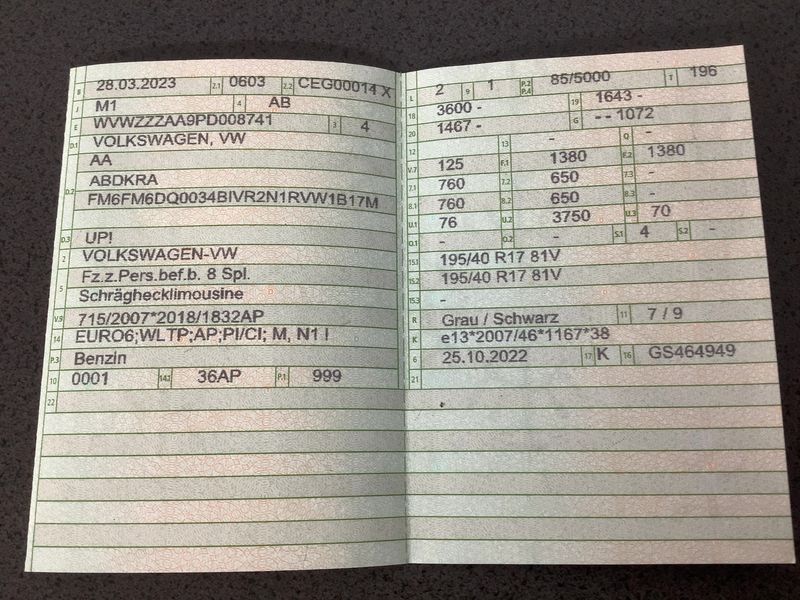 B 28.03.2023 2.1 0603 2.2 CEG00014 X
J M1 4 AB
E WVWZZZAA9PD008741 3 4
D.1 VOLKSWAGEN, VW
D.2 AA
ABDKRA
FM6FM6DQ0034BIVR2N1RVW1B17M
D.3 UP!
2 VOLKSWAGEN-VW
5 Fz.z.Pers.bef.b. 8 Spl.
Schräghecklimousine
V.9 715/2007*2018/1832AP
14 EURO6;WLTP;AP;PI/CI; M, N1 I
P.3 Benzin
10 0001 14.1 36AP P.1 999
22
L 2 9 1 P.2 P.4 85/5000 T 196
18 3600 - 19 1643 -
20 1467 - G - - 1072
12 13 - Q -
V.7 125 F.1 1380 F.2 1380
7.1 760 7.2 650 7.3 -
8.1 760 8.2 650 8.3 -
U.1 76 U.2 3750 U.3 70
O.1 - O.2 - S.1 4 S.2 -
15.1 195/40 R17 81V
15.2 195/40 R17 81V
15.3 -
R Grau / Schwarz 11 7 / 9
K e13*2007/46*1167*38
6 25.10.2022 17 K 16 GS464949
21